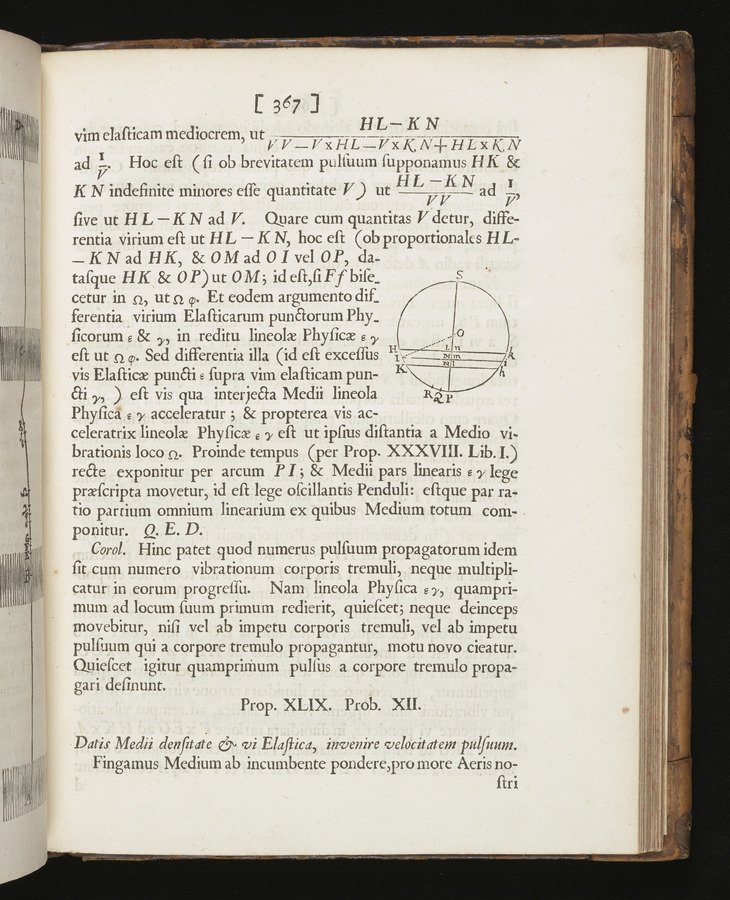 [ 367 ]
vim elaſticam mediocrem, ut HL — KN / VV — V x HL — V x KN + HL x KN
ad 1/V. Hoc eſt (ſi ob brevitatem pulſuum ſupponamus HK &
KN indefinite minores eſſe quantitate V) ut HL — KN / VV ad 1/V,
ſive ut HL — KN ad V. Quare cum quantitas V detur, diffe-
rentia virium eſt ut HL — KN, hoc eſt (ob proportionales HL-
— KN ad HK, & OM ad OI vel OP, da-
taſque HK & OP) ut OM; id eſt, ſi Ff biſe-
cetur in Ω, ut Ω φ. Et eodem argumento dif-
ferentia virium Elaſticarum punctorum Phy-
ſicorum ε & γ, in reditu lineolæ Phyſicæ ε γ
eſt ut Ω φ. Sed differentia illa (id eſt exceſſus
vis Elaſticæ puncti ε ſupra vim elaſticam pun-
cti γ, ) eſt vis qua interjecta Medii lineola
Phyſica ε γ acceleratur; & propterea vis ac-
celeratrix lineolæ Phyſicæ ε γ eſt ut ipſius diſtantia a Medio vi-
brationis loco Ω. Proinde tempus (per Prop. XXXVIII. Lib. I.)
recte exponitur per arcum PI; & Medii pars linearis ε γ lege
præſcripta movetur, id eſt lege oſcillantis Penduli: eſtque par ra-
tio partium omnium linearium ex quibus Medium totum com-
ponitur. Q. E. D.
Corol. Hinc patet quod numerus pulſuum propagatorum idem
ſit cum numero vibrationum corporis tremuli, neque multipli-
catur in eorum progreſſu. Nam lineola Phyſica ε γ, quampri-
mum ad locum ſuum primum redierit, quieſcet; neque deinceps
movebitur, niſi vel ab impetu corporis tremuli, vel ab impetu
pulſuum qui a corpore tremulo propagantur, motu novo cieatur.
Quieſcet igitur quamprimum pulſus a corpore tremulo propa-
gari deſinunt.
Prop. XLIX. Prob. XII.
Datis Medii denſitate & vi Elaſtica, invenire velocitatem pulſuum.
Fingamus Medium ab incumbente pondere, pro more Aeris no-
ſtri
S
O
H
L n
k
I
N m
i
K
N l
h
R Q P